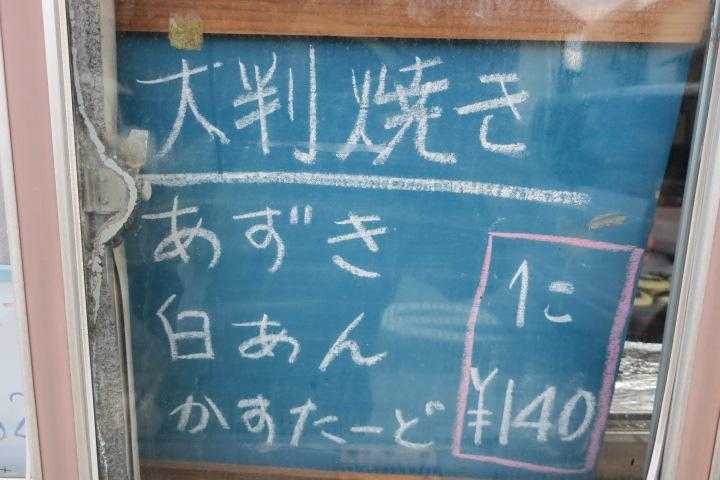 大判焼き
あずき
白あん
かすたーど
1こ
¥140